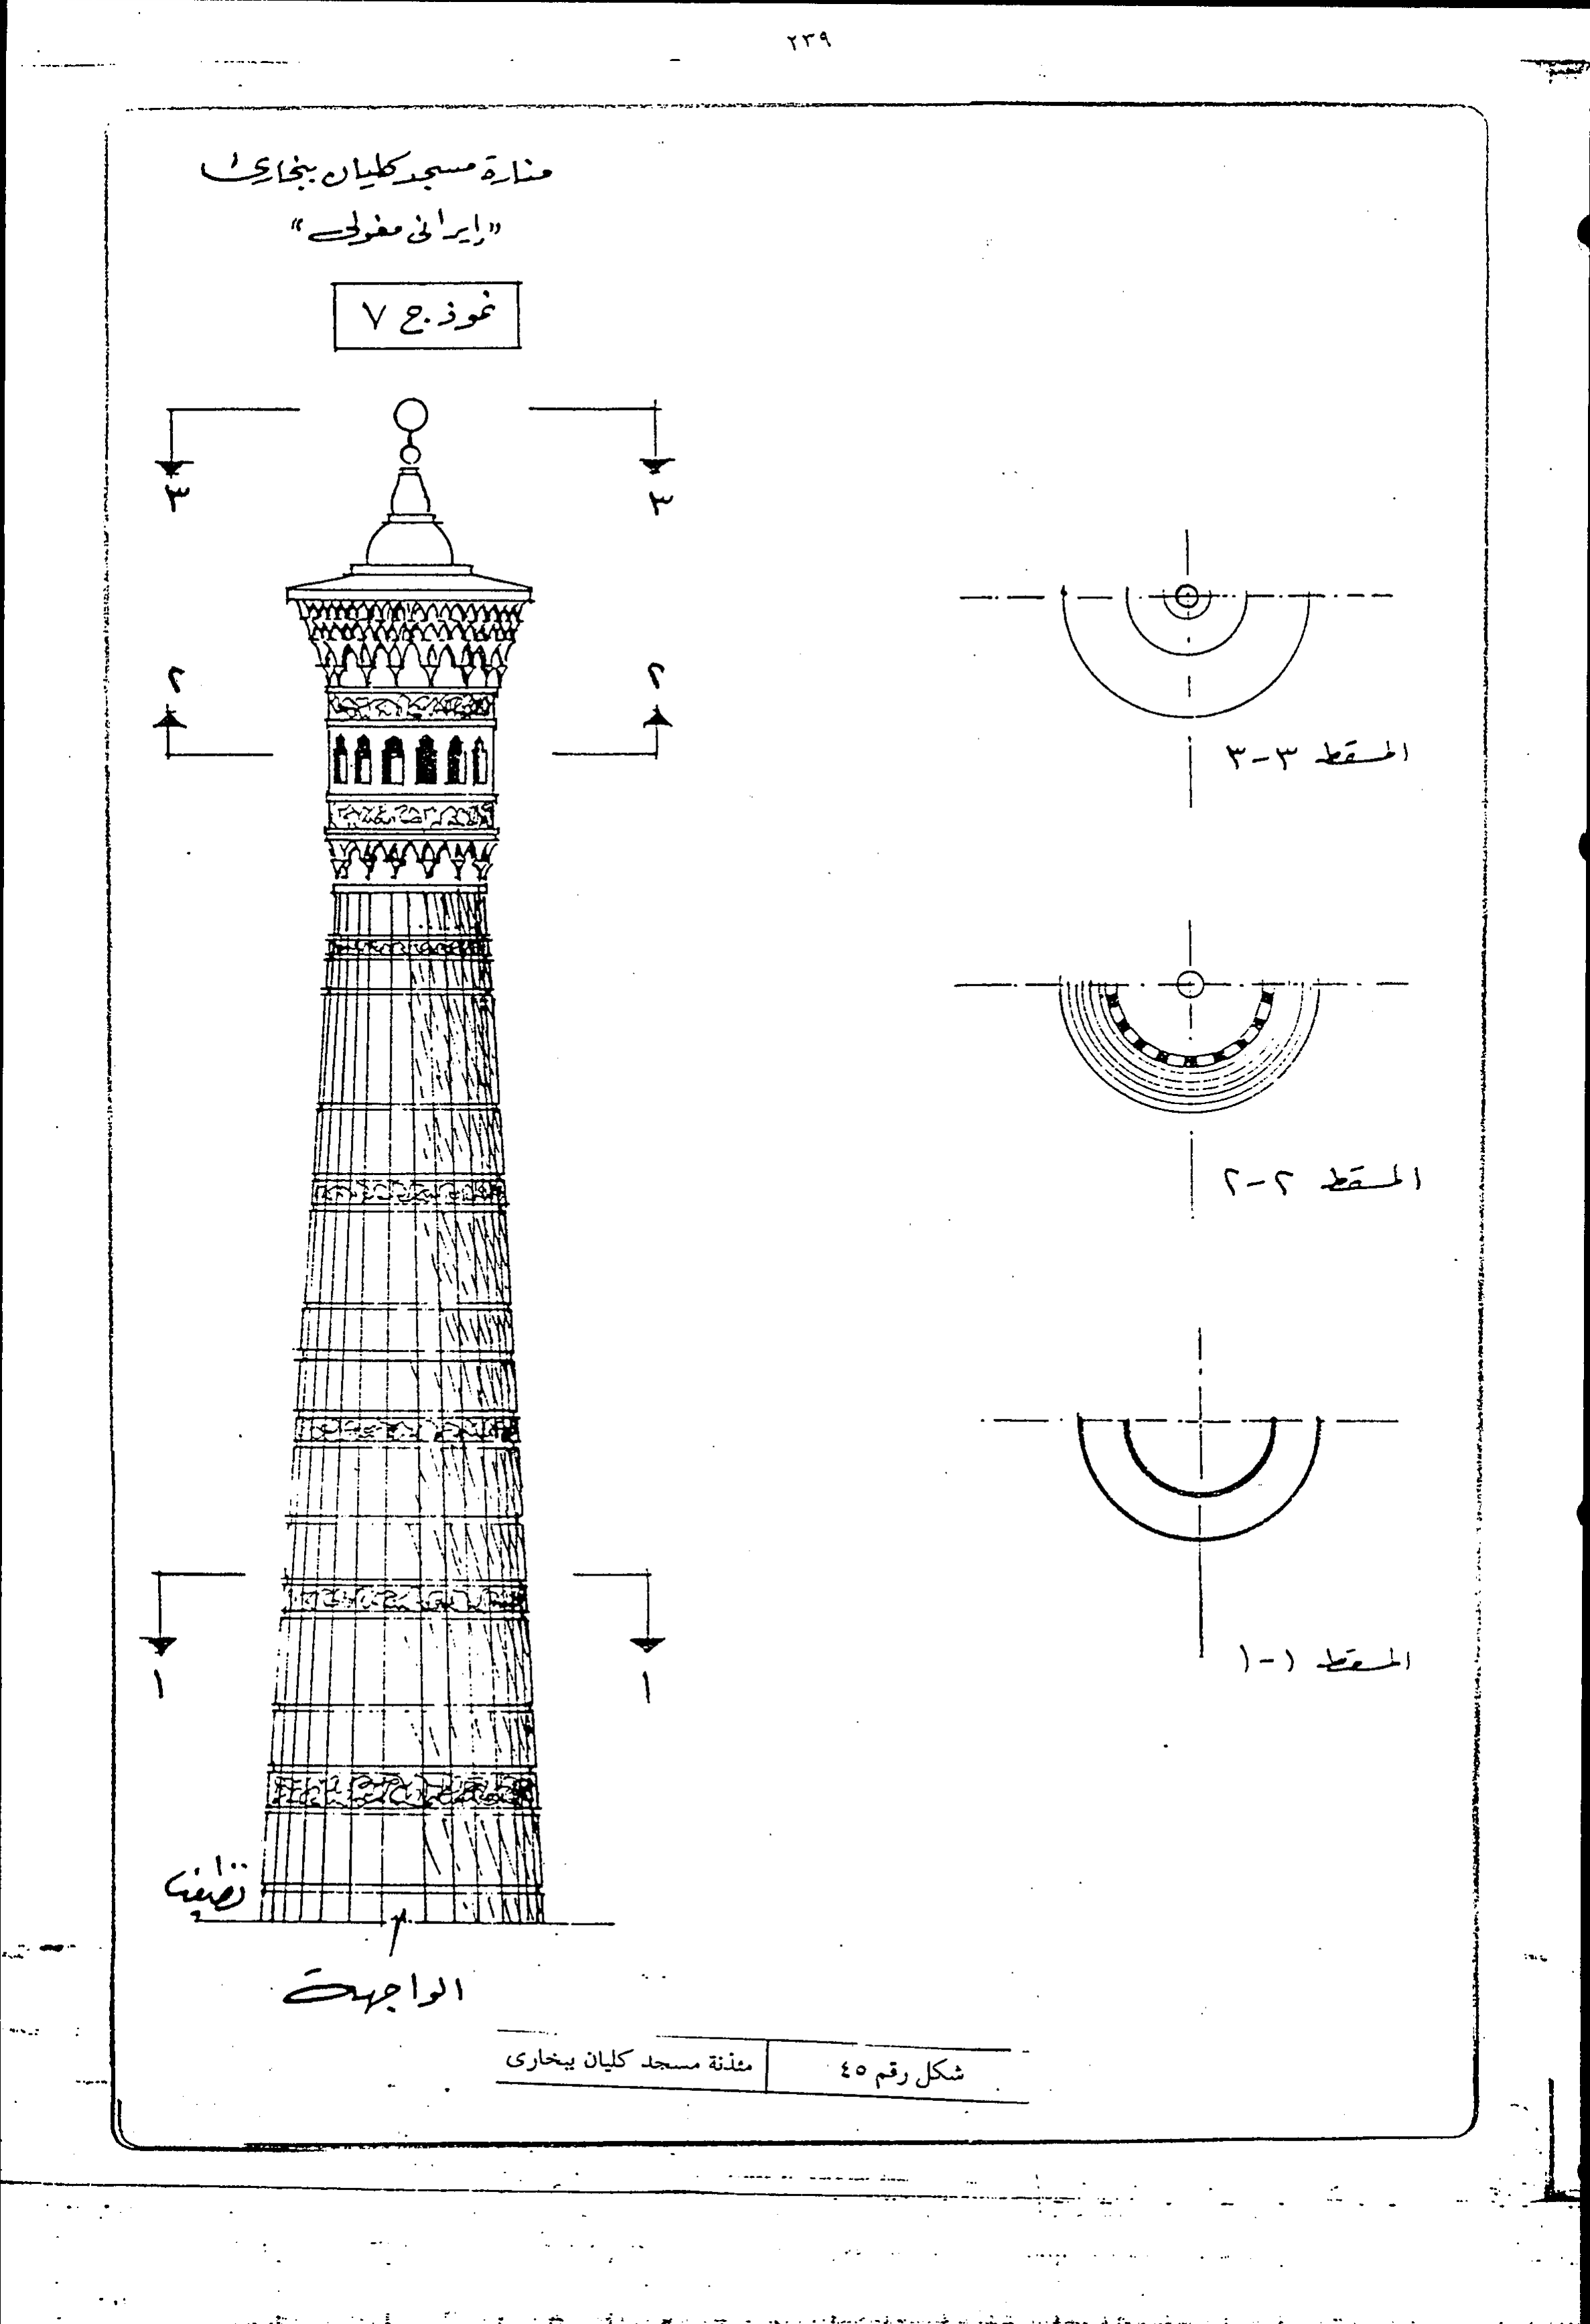 ٢٣٩
منارة مسجد كليان ببخارى
"إيرانى مغولى"
نموذج ٧
٣
٣
٢
٢
المسقط ٣-٣
المسقط ٢-٢
١
١
المسقط ١-١
الواجهة
شكل رقم ٤٥
مئذنة مسجد كليان ببخارى